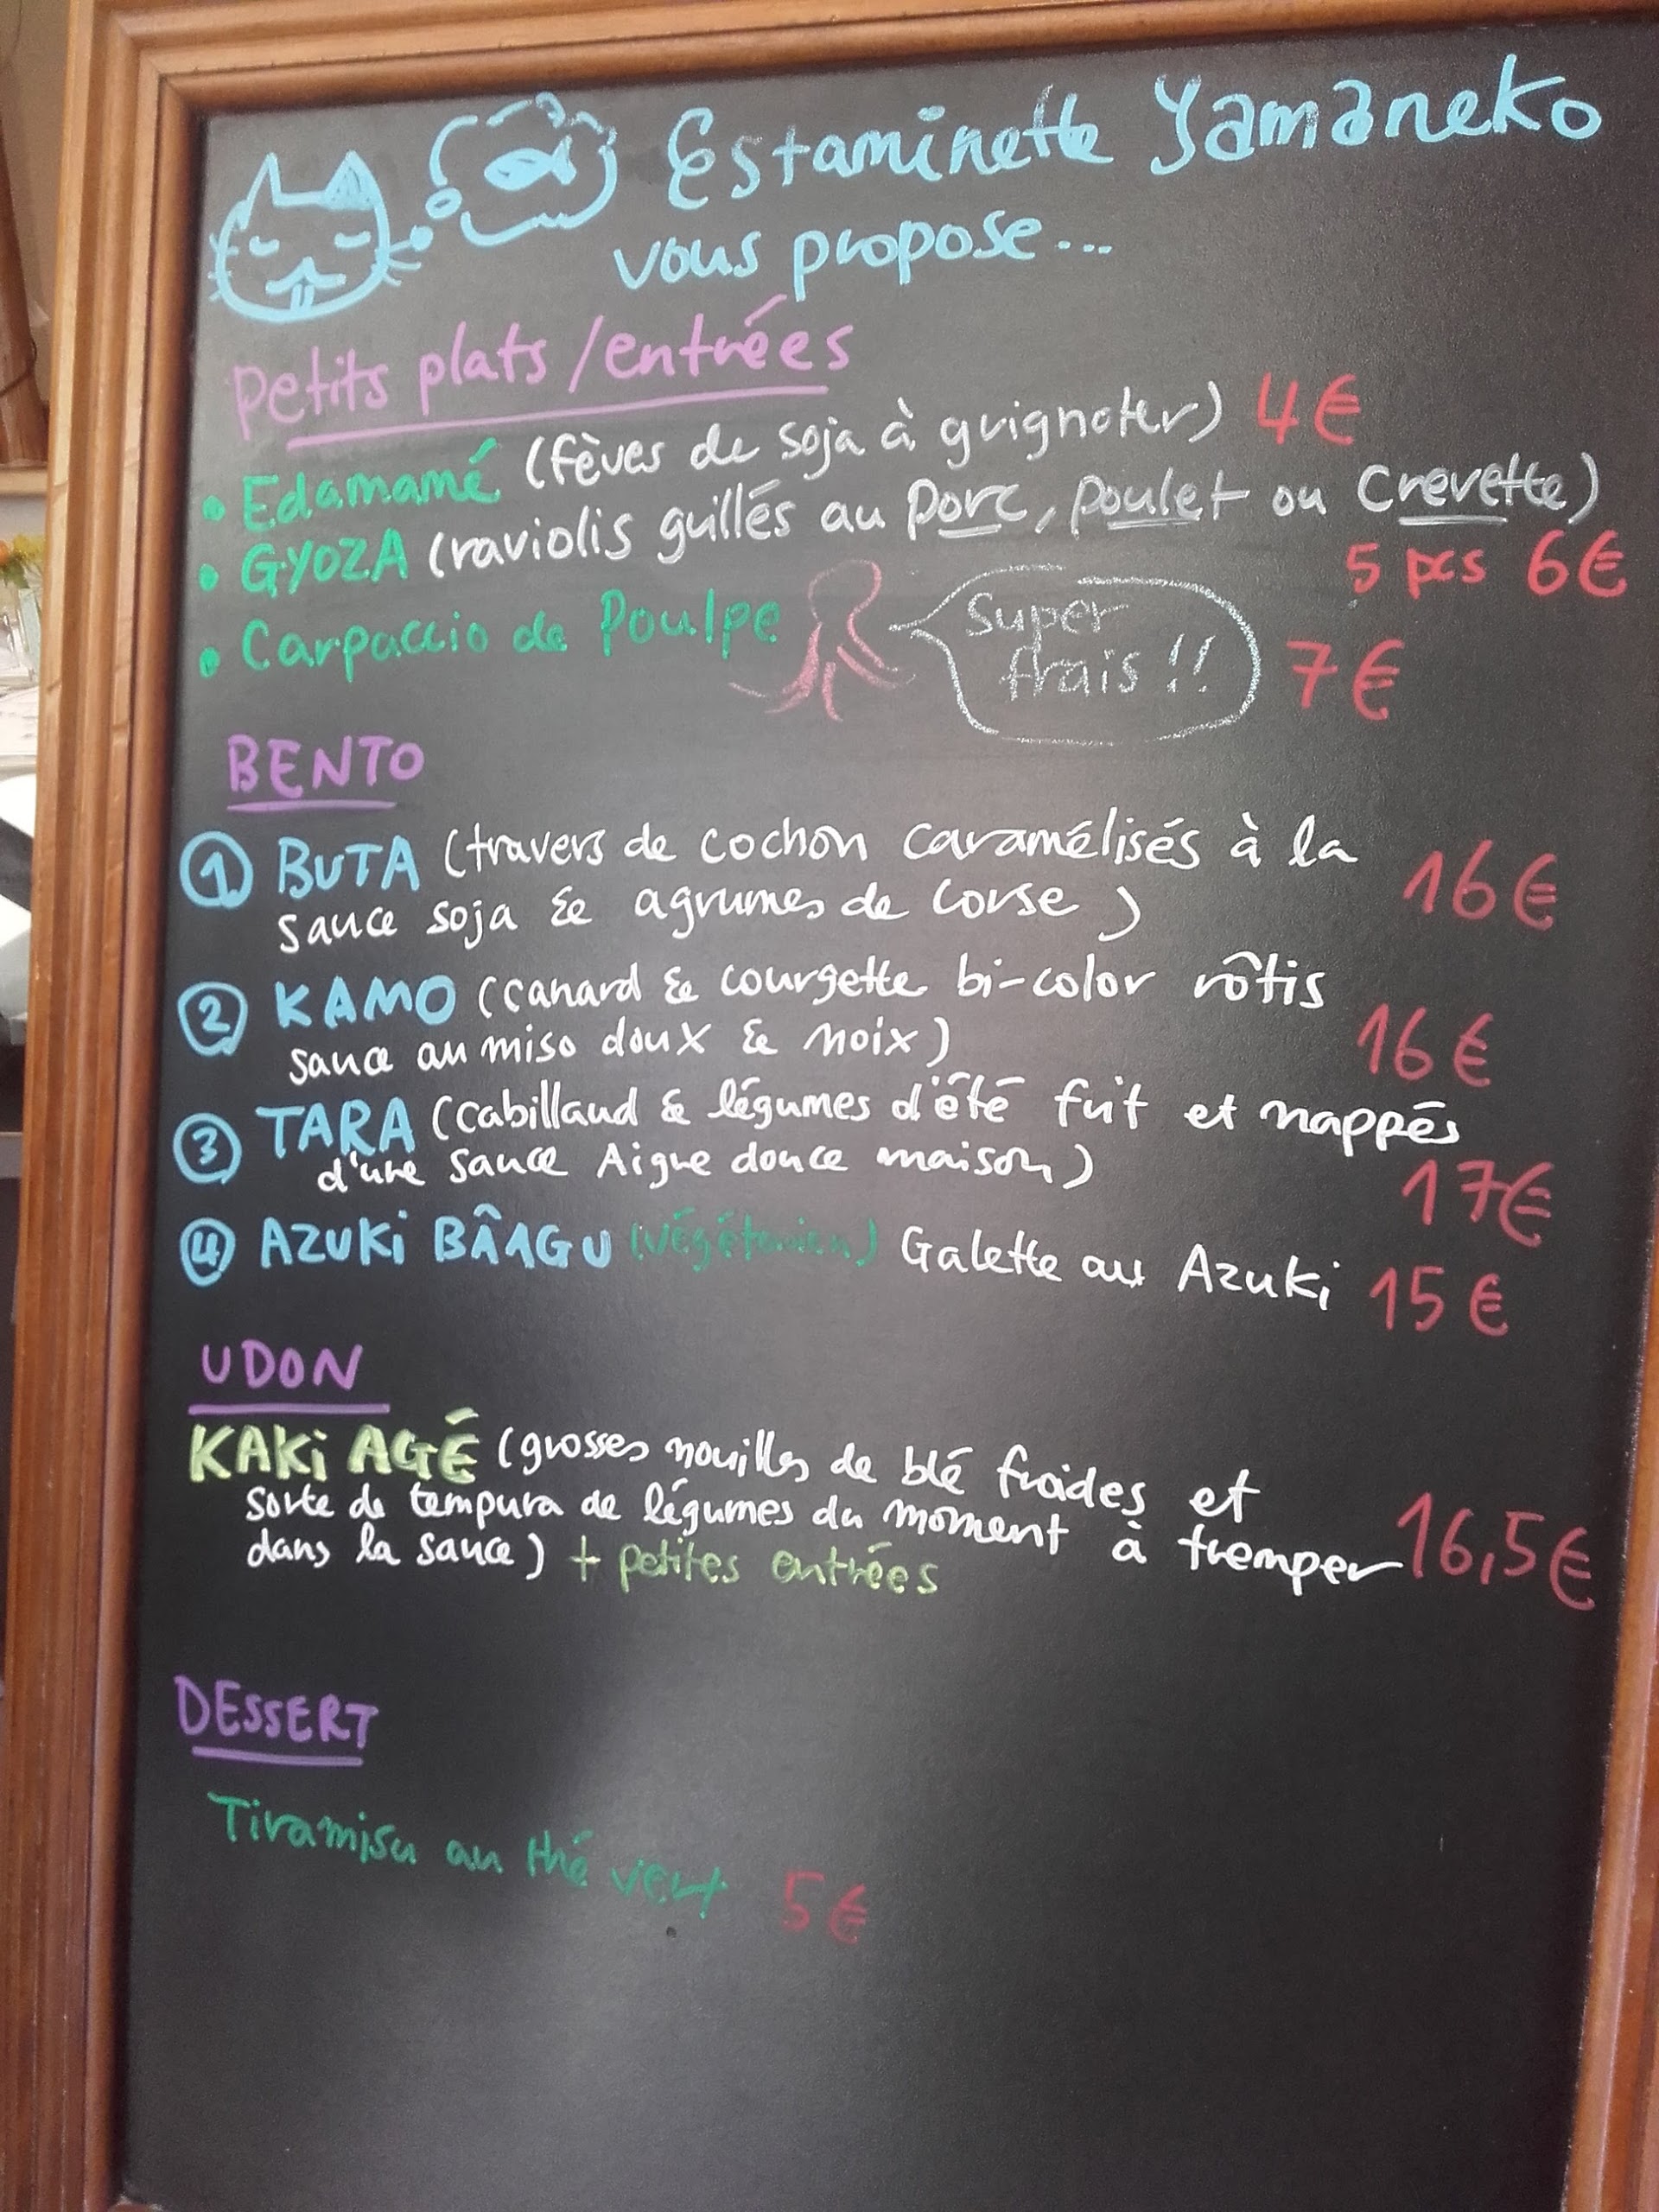 Estaminette Yamaneko
vous propose...
Petits plats / entrées
• Edamamé (fèves de soja à grignoter) 4€
• GYOZA (raviolis grillés au Porc, Poulet ou Crevette)
5 pcs 6€
• Carpaccio de Poulpe Super
frais!! 7€
BENTO
① BUTA (travers de cochon caramélisés à la
sauce soja & agrumes de Corse) 16€
② KAMO (canard & courgette bi-color rôtis
sauce au miso doux & noix) 16€
③ TARA (cabillaud & légumes d'été frit et nappés
d'une sauce Aigre douce maison) 17€
④ AZUKi BÂAGU (végétarien) Galette au Azuki 15€
UDON
KAKi AGÉ (grosses nouilles de blé froides et
sorte de tempura de légumes du moment à tremper 16,5€
dans la sauce) + petites entrées
DESSERT
Tiramisu au thé vert 5€